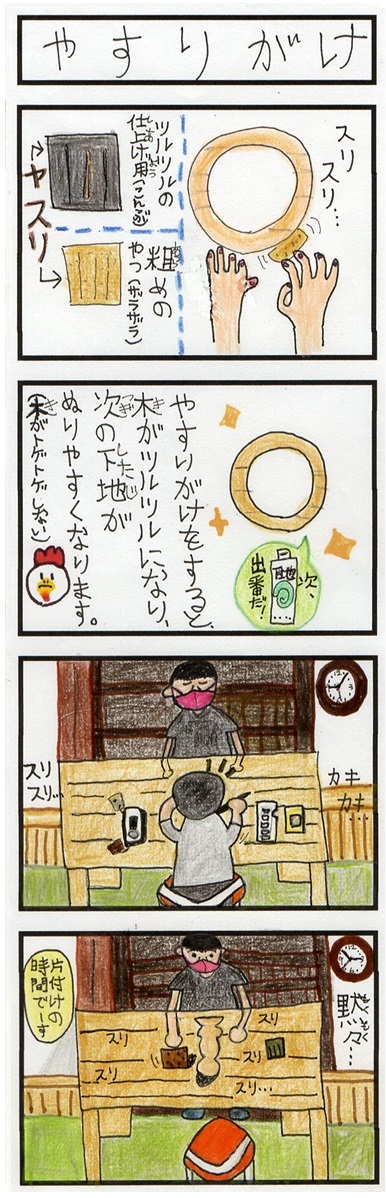 やすりがけ
スリ
スリ…
ツルツルの
仕上げ用(こんぶ)
ヤスリ
粗めの
やつ(ザラザラ)
次、
出番だ!
下地
やすりがけをすると、
木がツルツルになり、
次の下地が
ぬりやすくなります。
(木がトゲトゲしない)
カキ
カキ…
スリ
スリ…
黙々…
スリ
スリ
スリ
スリ…
片付けの
時間でーす